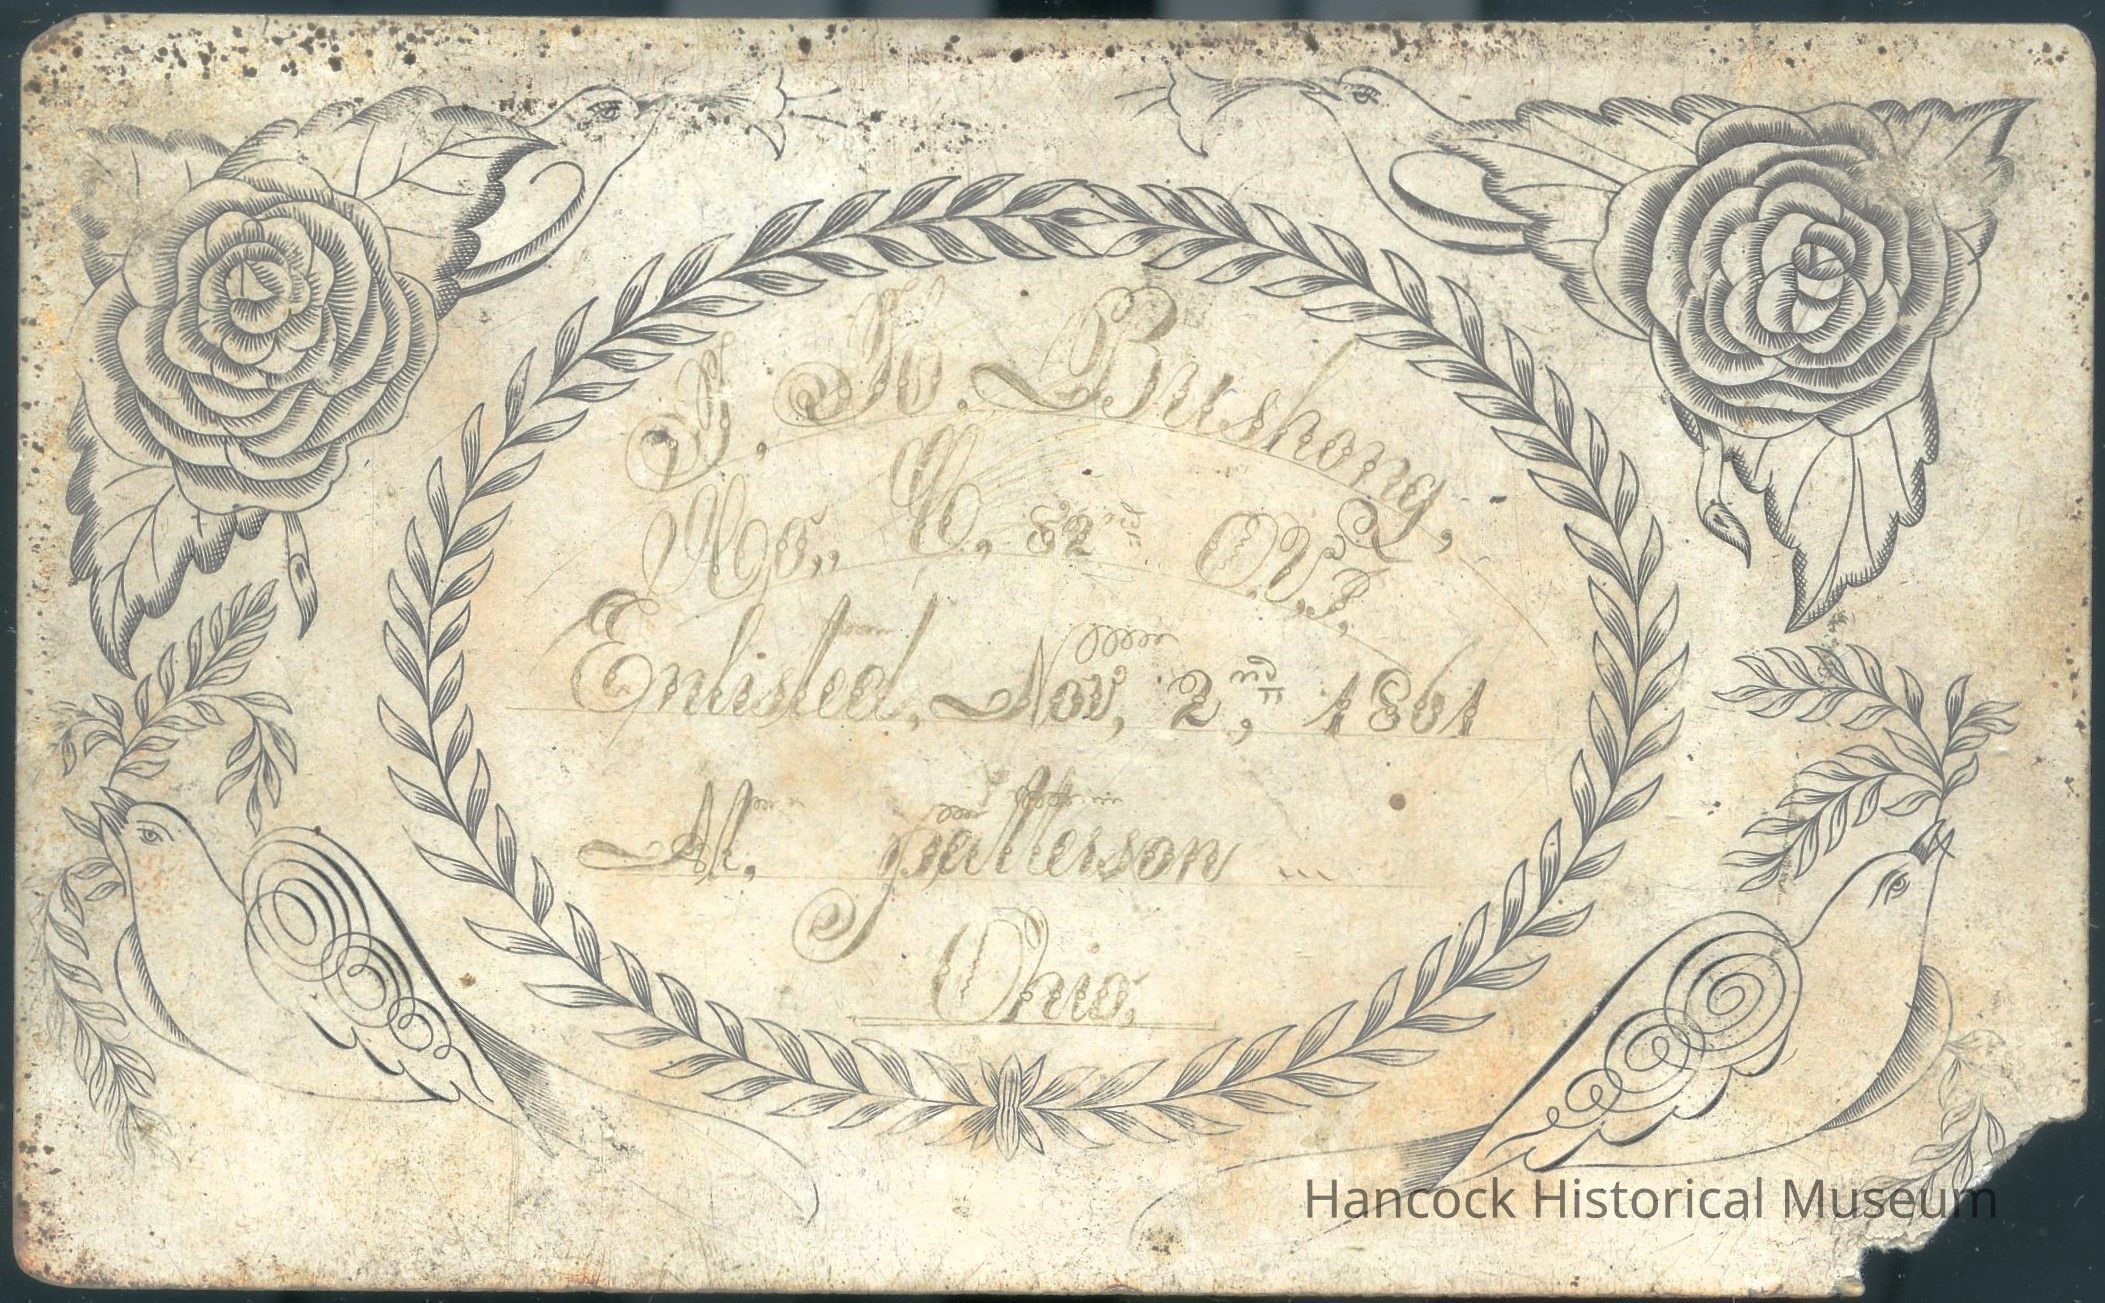 Bushong,
Co., C., 82nd O.V.I,
Enlisted, Nov, 2nd, 1861
Mt, patterson ...
Ohio,
Hancock Historical Museum